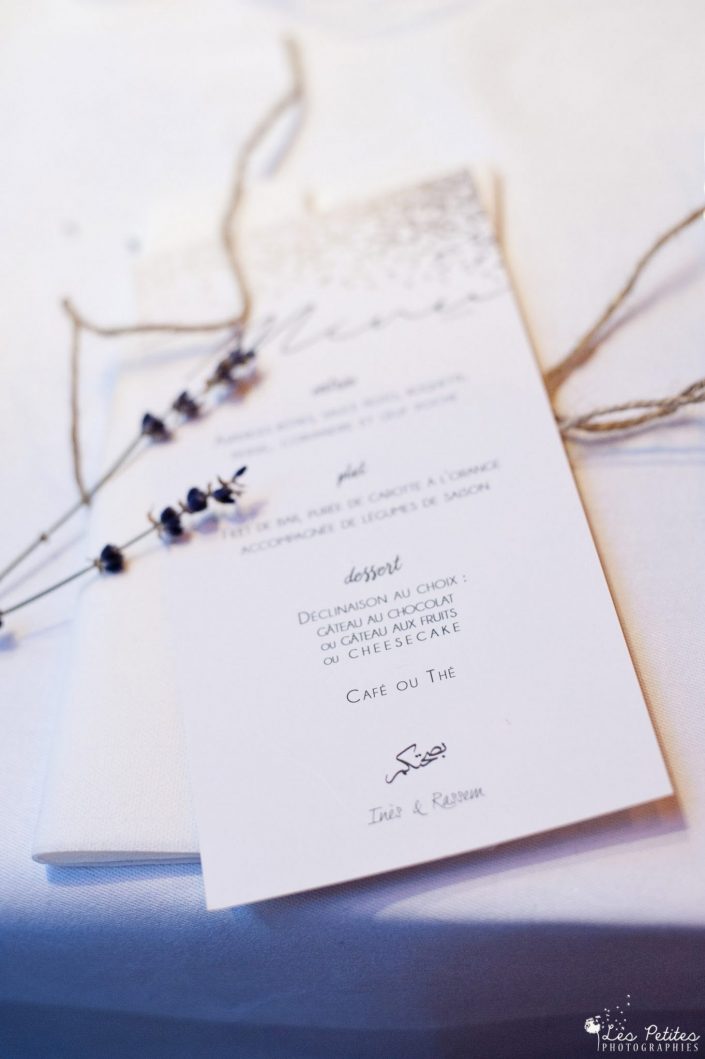 Menu
entrée
plat
Filet de bar, purée de carotte à l'orange
accompagnée de légumes de saison
dessert
Déclinaison au choix :
gâteau au chocolat
ou gâteau aux fruits
ou cheesecake
Café ou Thé
بصحتكم
Inès & Rassem
Les Petites
Photographies